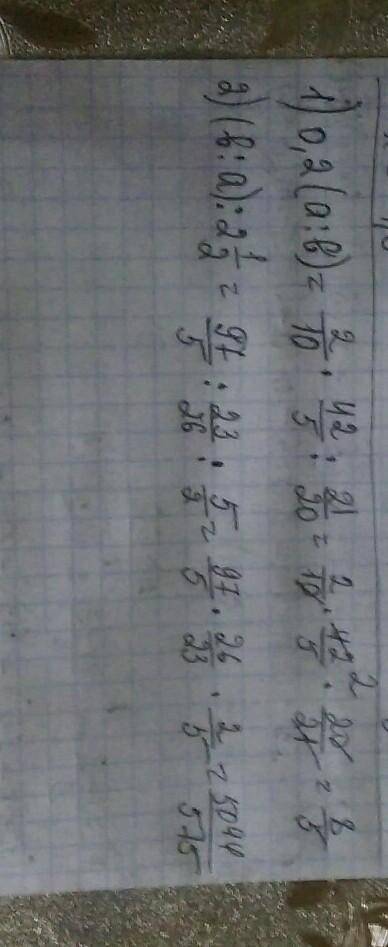 1) 0,2(a:b) = 2/10 · 42/5 : 21/20 = 2/10 · 42/5 2 · 20/21 = 8/5
2) (b:a) : 2 1/2 = 97/5 : 23/26 : 5/2 = 97/5 · 26/23 · 2/5 = 5044/575